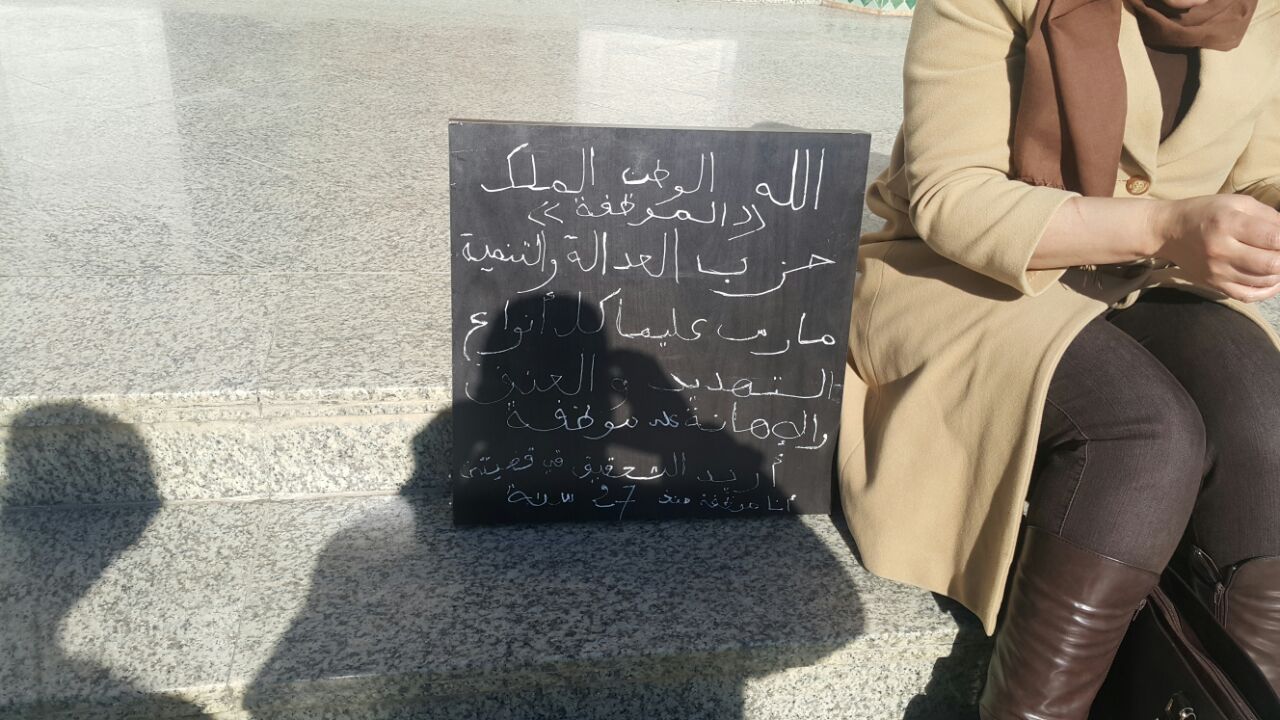 الله الوطن الملك
«الموظفة»
حزب العدالة والتنمية
مارس عليها كل أنواع
التهديد و العنف
والإهانة كل موظفة
أريد التحقيق في قضيتي
أنا موظفة منذ 27 سنة